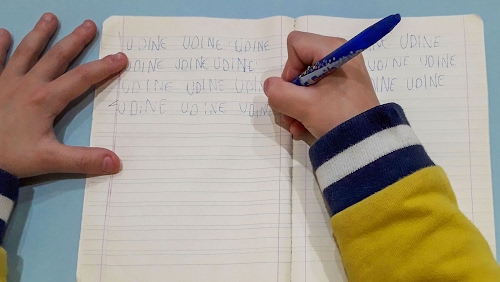 UDINE UDINE UDINE
UDINE UDINE UDINE
UDINE UDINE UDIN
UDINE UDINE UDINE
UDINE
UDINE UDINE
UDINE UDINE